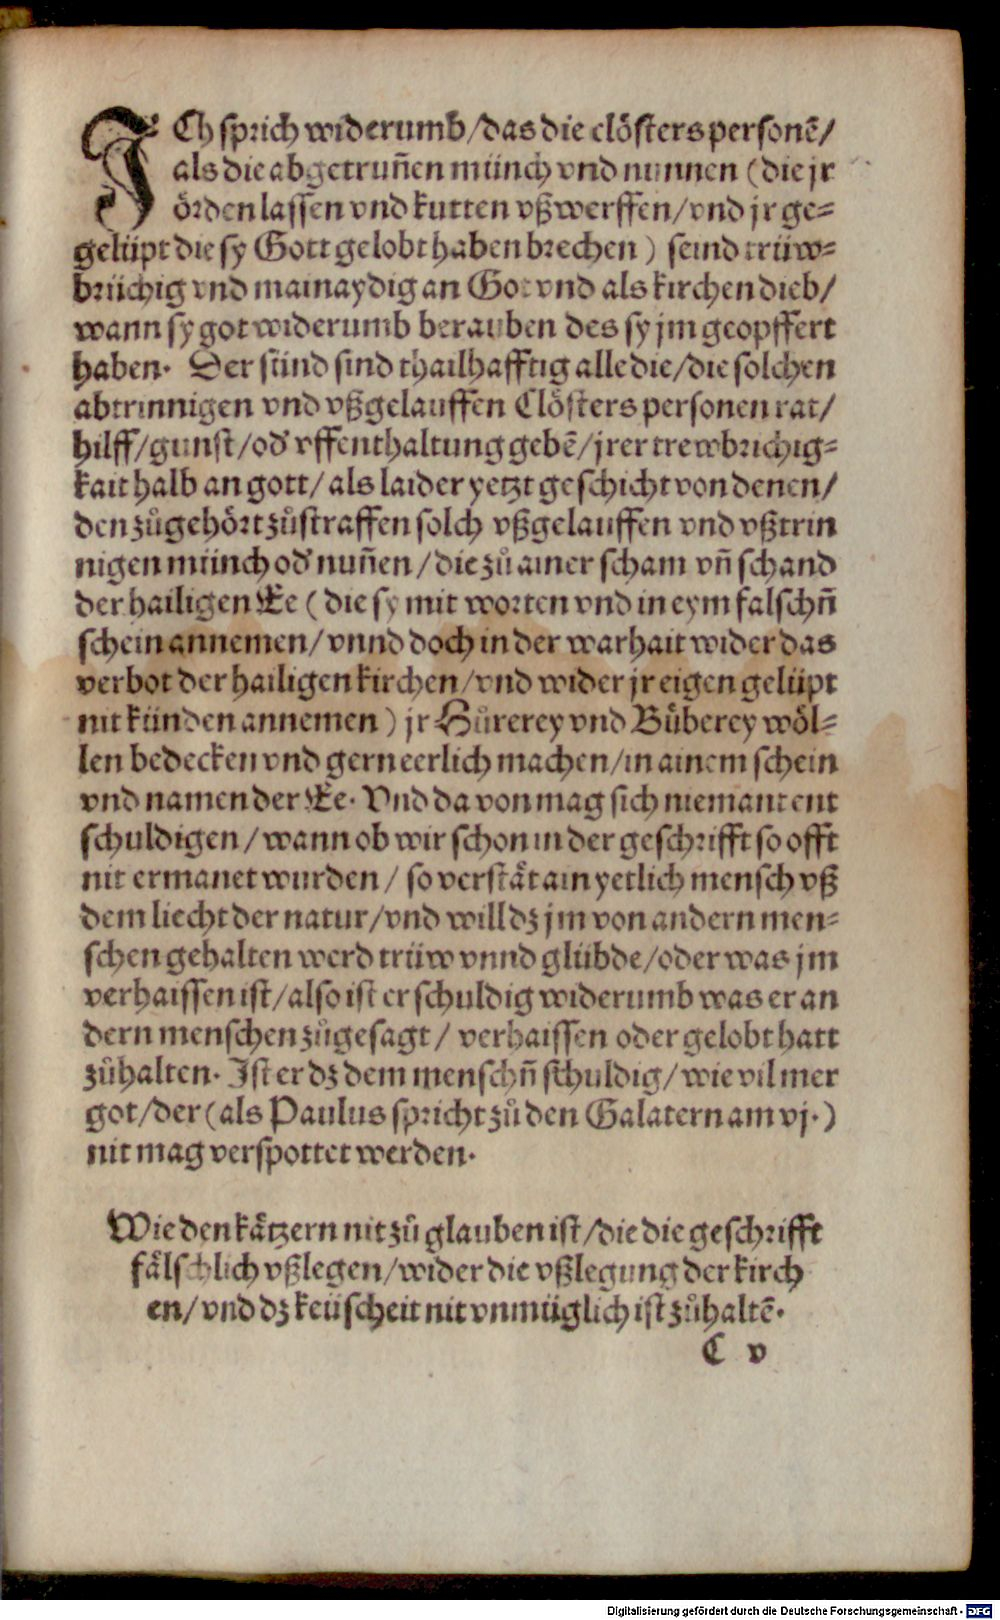 ICh sprich widerumb/das die clösters personē/
als die abgetruñen münch vnd nunnen (die jr
örden lassen vnd kutten vßwerffen/vnd jr ge=
gelüpt die sy Gott gelobt haben brechen) seind trüw=
brüchig vnd mainaydig an Got vnd als kirchen dieb/
wann sy got widerumb berauben des sy jm geopffert
haben. Der sünd sind thailhafftig alle die/die solchen
abtrinnigen vnd vßgelauffen Clösters personen rat/
hilff/gunst/od' vffenthaltung gebē/jrer trewbrichig=
kait halb an gott/als laider yetzt geschicht von denen/
den zůgehört zůstraffen solch vßgelauffen vnd vßtrin
nigen münch od' nuñen/die zů ainer scham vñ schand
der hailigen Ee (die sy mit worten vnd in eym falschñ
schein annemen/vnnd doch in der warhait wider das
verbot der hailigen kirchen/vnd wider jr eigen gelüpt
nit künden annemen) jr Hůrerey vnd Bůberey wöl=
len bedecken vnd gern eerlich machen/in ainem schein
vnd namen der Ee. Vnd da von mag sich niemant ent
schuldigen/wann ob wir schon in der geschrifft so offt
nit ermanet wurden/so verstät ain yetlich mensch vß
dem liecht der natur/vnd will dz jm von andern men=
schen gehalten werd trüw vnnd glübde/oder was jm
verhaissen ist/also ist er schuldig widerumb was er an
dern menschen zůgesagt/verhaissen oder gelobt hatt
zůhalten. Ist er dz dem menschñ schuldig/wie vil mer
got/der (als Paulus spricht zů den Galatern am vj.)
nit mag verspottet werden.
Wie den kätzern nit zů glauben ist/die die geschrifft
fälschlich vßlegen/wider die vßlegung der kirch
en/vnd dz keüscheit nit vnmüglich ist zůhaltē.
C v
Digitalisierung gefördert durch die Deutsche Forschungsgemeinschaft - DFG